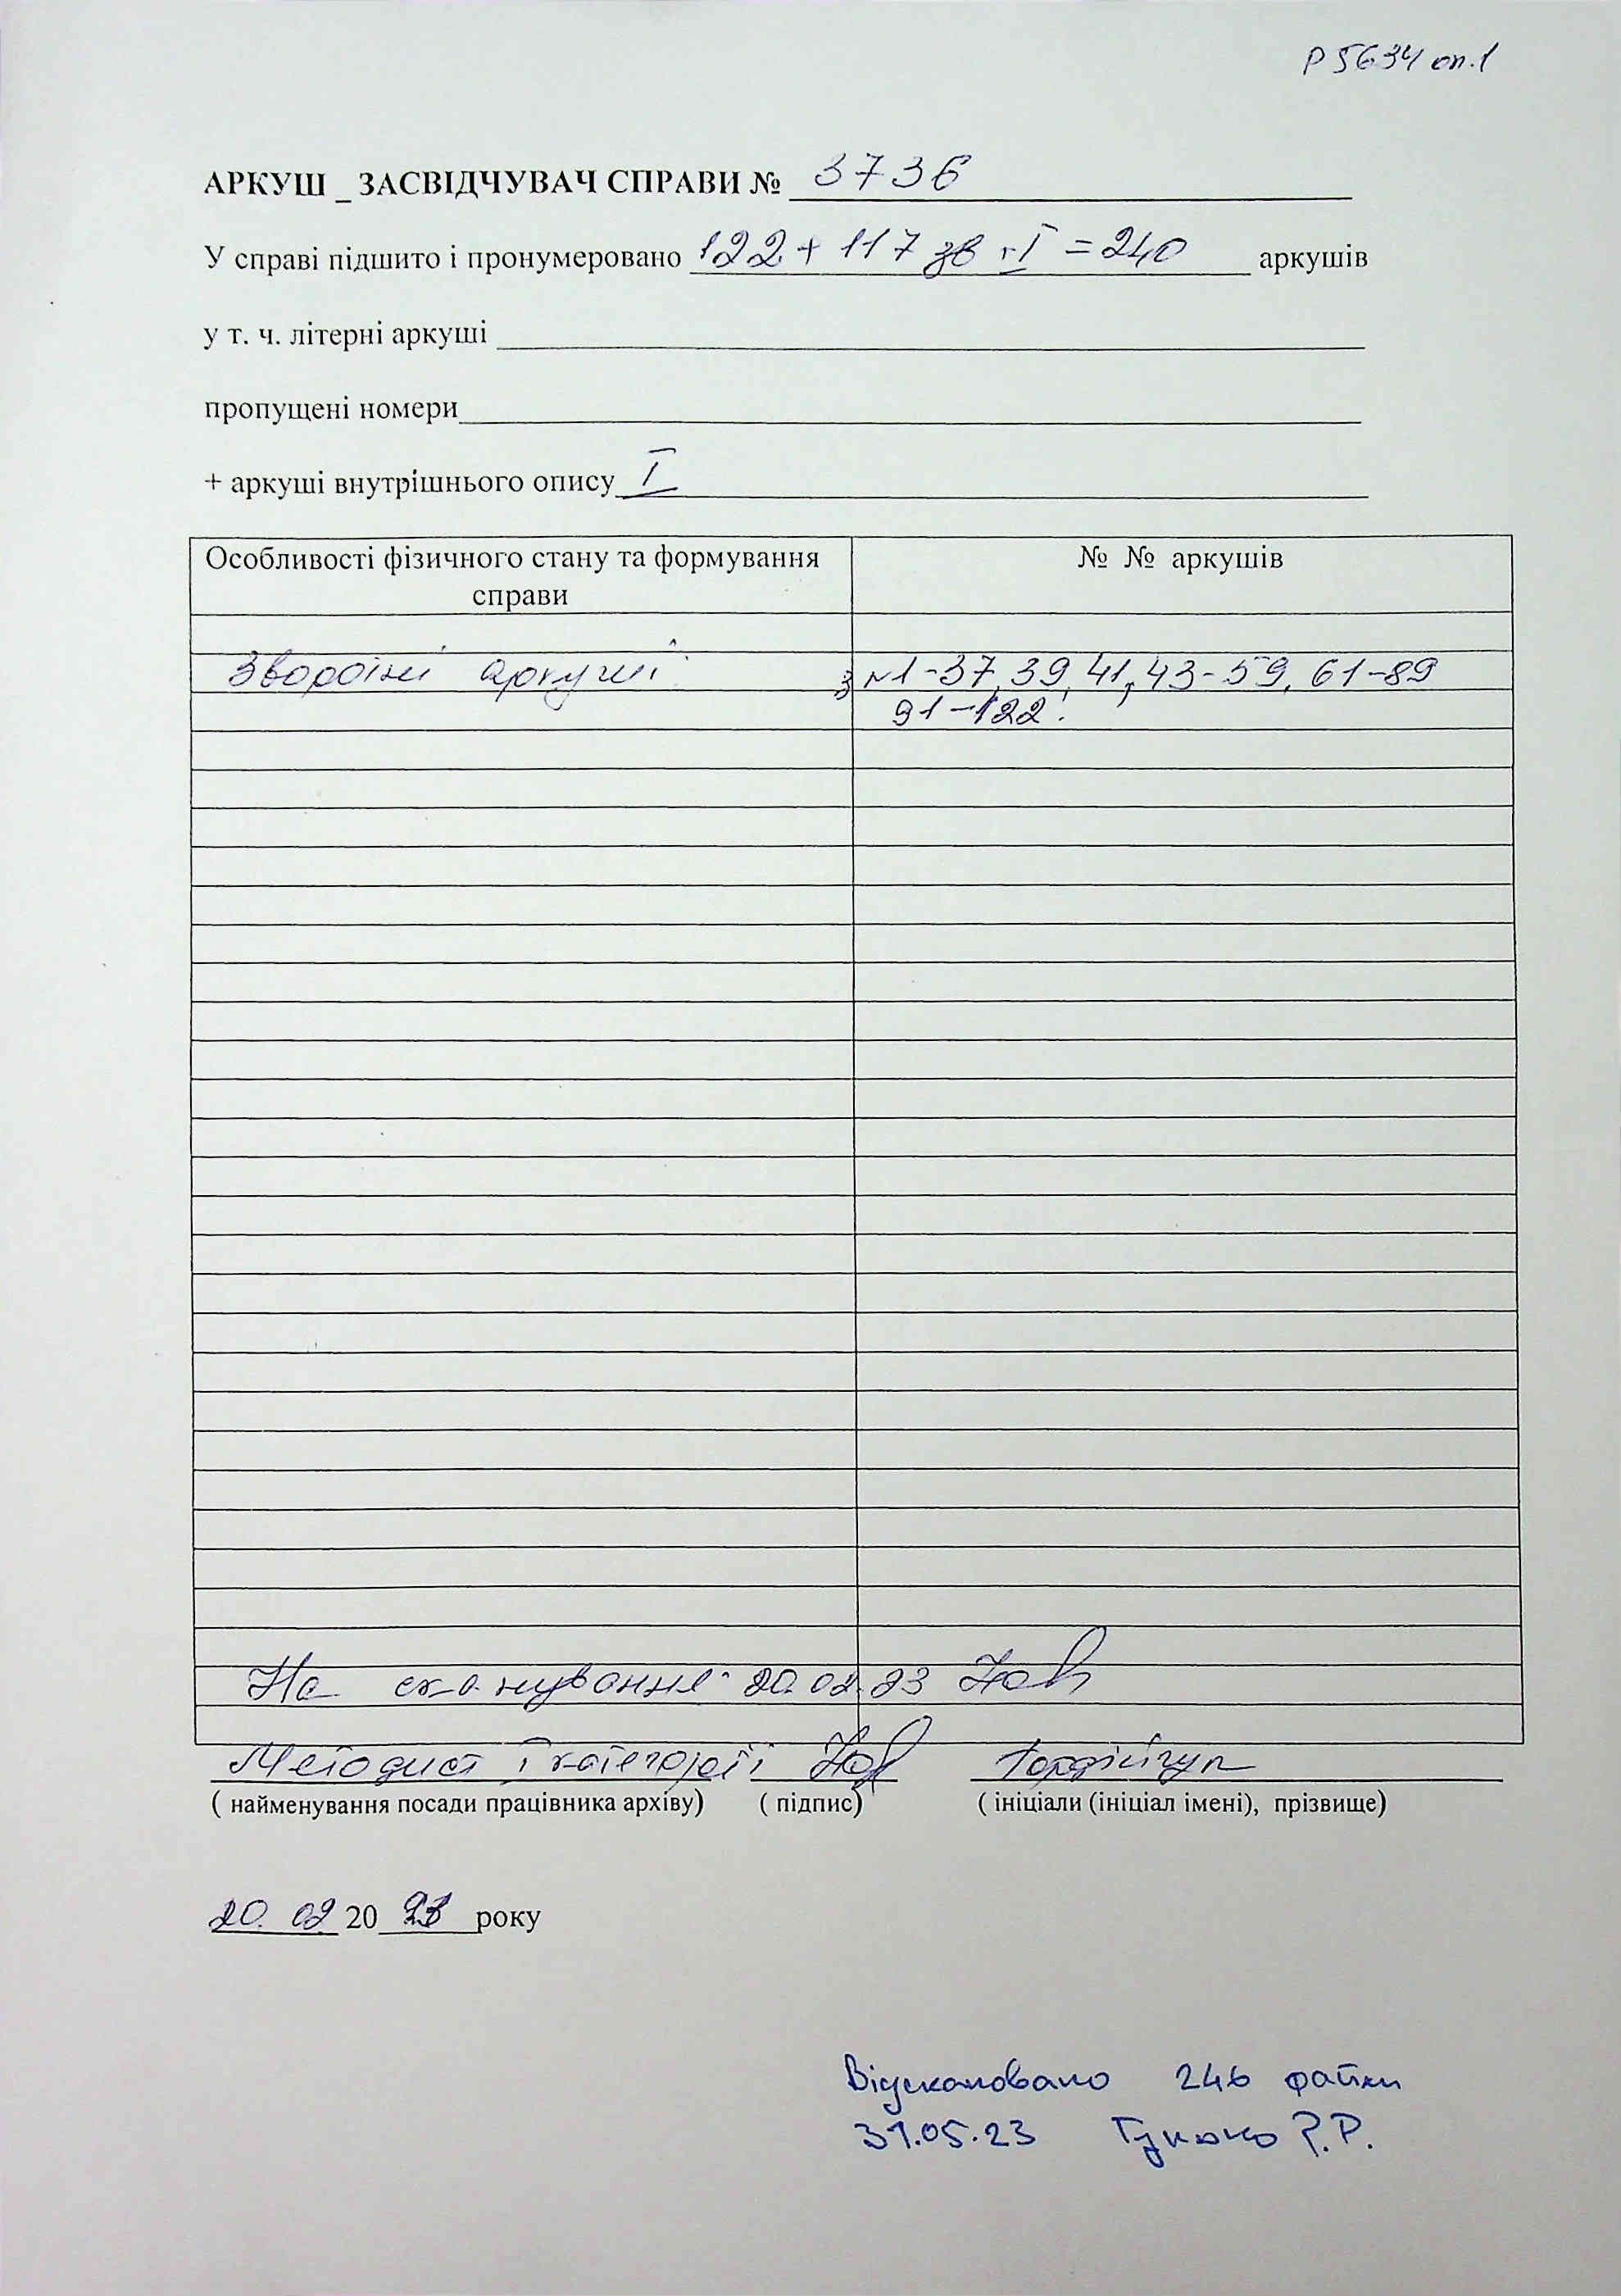 Р 5634 оп.1
АРКУШ _ ЗАСВІДЧУВАЧ СПРАВИ № 3736
У справі підшито і пронумеровано 122 + 117 зв + I = 240 аркушів
у т. ч. літерні аркуші
пропущені номери
+ аркуші внутрішнього опису I
Особливості фізичного стану та формування справи
№ № аркушів
Зворотні аркуші
№1-37, 39, 41, 43-59, 61-89
91-122.
На сканування 20.02.23
Методист I категорії
( найменування посади працівника архіву) ( підпис) ( ініціали (ініціал імені), прізвище)
20. 02 20 23 року
Відскановано 246 файли
31.05.23 Р.Р.